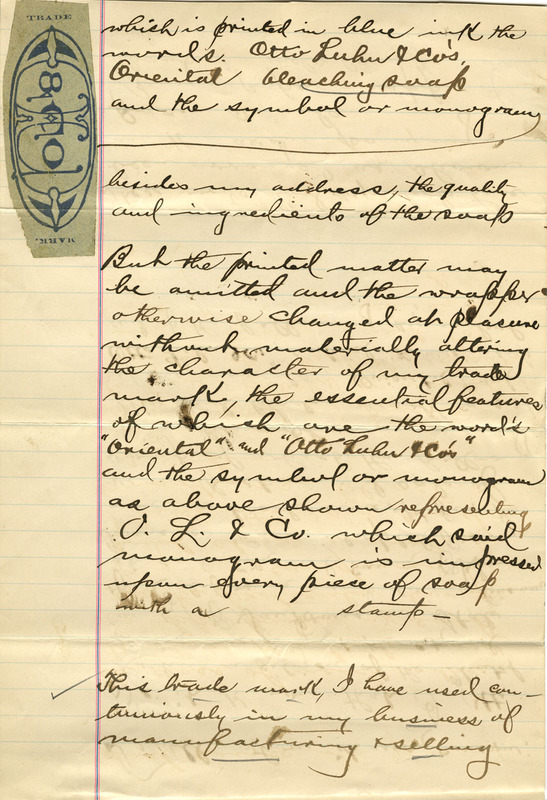 TRADE
MARK.
which is printed in blue ink the
words. Otto Luhn & Co's,
Oriental bleaching soap
and the symbol or monogram
besides my address, the quality
and ingredients of the soap
But the printed matter may
be omitted and the wrapper
otherwise changed at pleasure
without materially altering
the character of my trade
mark, the essential features
of which are the word's
"Oriental" and "Otto Luhn & Co's"
and the symbol or monogram
as above shown representing
O. L. & Co. which said
monogram is impressed
upon every piece of soap
with a stamp—
This trade mark, I have used con-
tinuously in my business of
manufacturing & selling